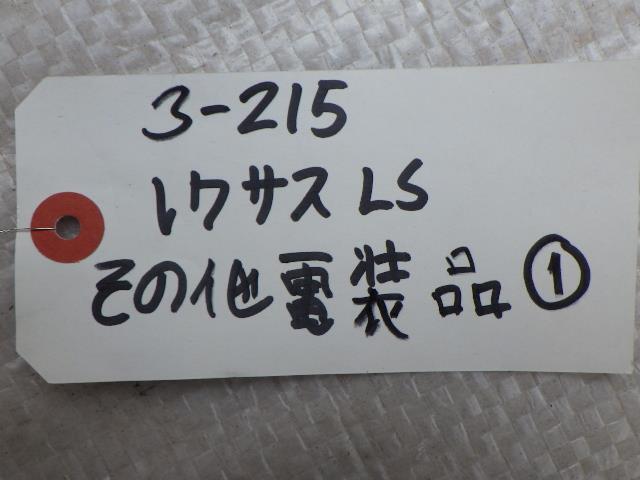 3-215
レクサス LS
その他電装品①